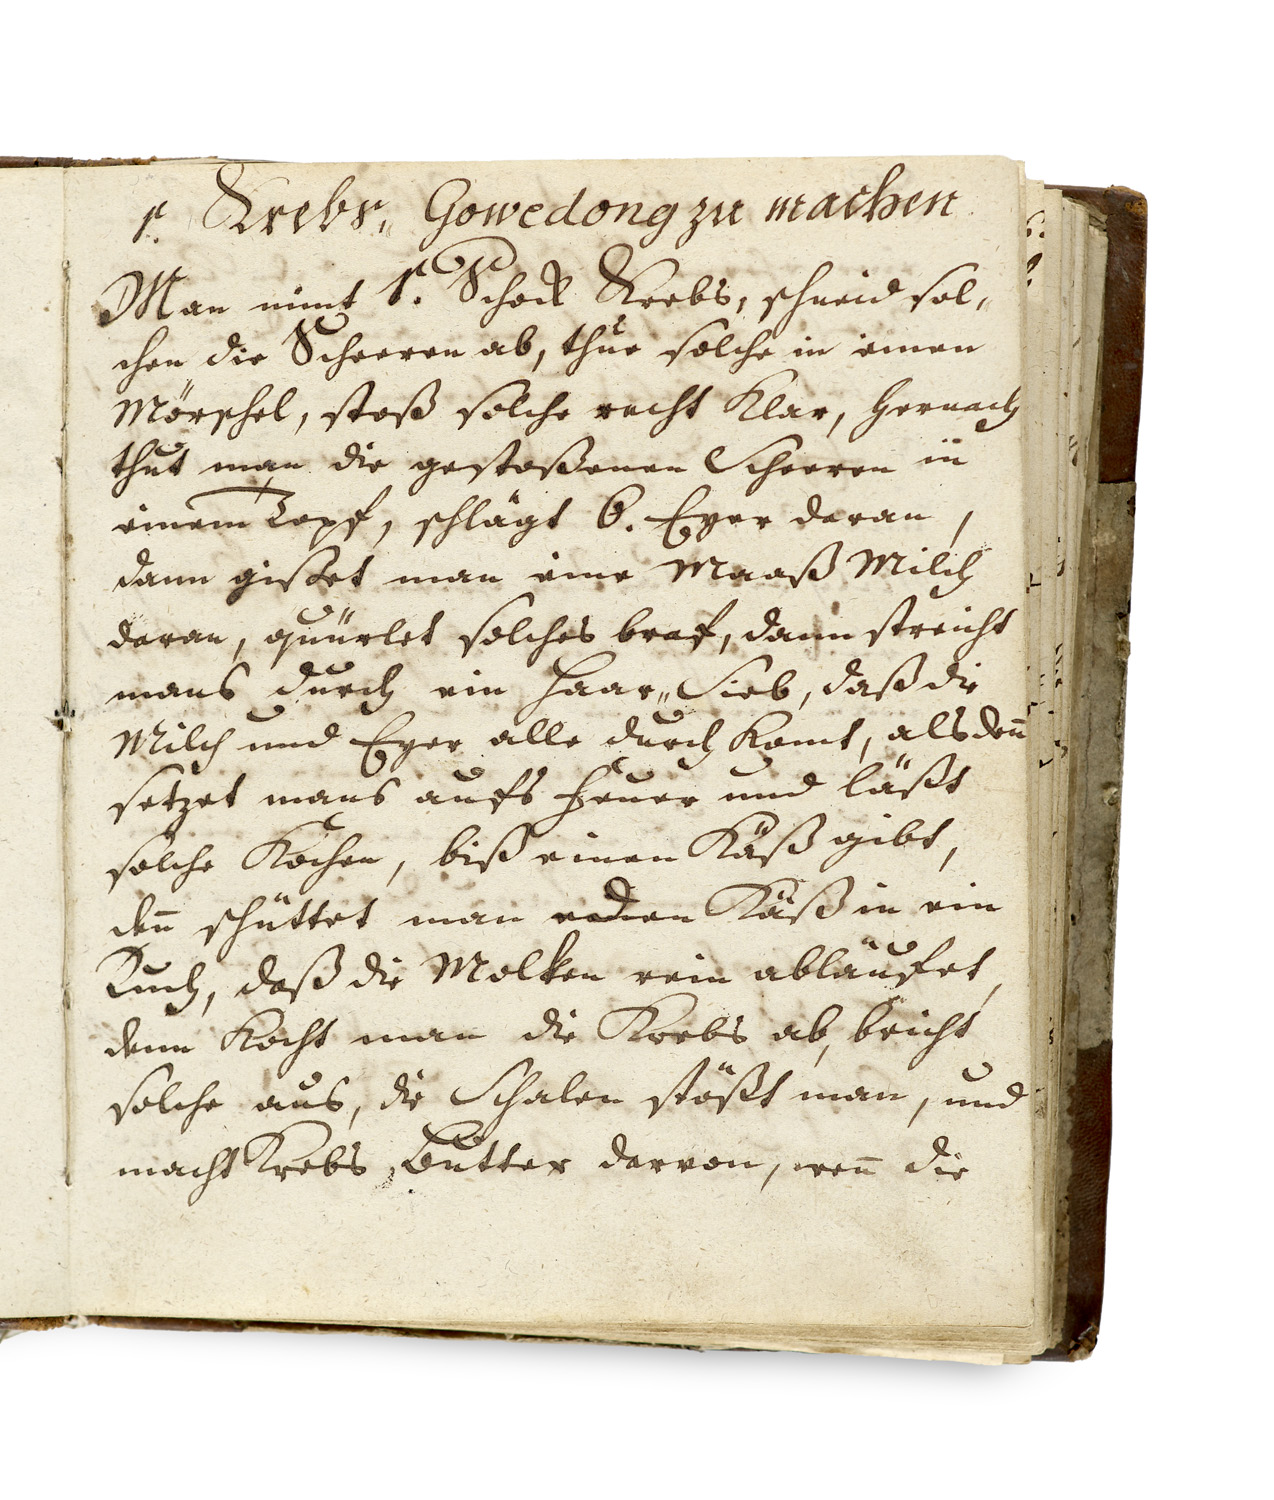 1. Krebs, Gowedong zu machen
Man nimt 1. Schock Krebs, schneid sol„
chen die Scheeren ab, thue solche in einen
Mörschel, stoß solche recht Klar, hernach
thut man die gestoßenen Scheeren in
einem Topf, schlägt 6. Eyer daran,
dann gißet man eine Maaß Milch
daran, quürlet solches braf, dann streicht
mans durch ein Haar„ Sieb, daß die
Milch und Eyer alle durch Komt, alsden̅
setzet mans aufs Feuer und läßt
solche Kochen, biß einen Käß gibt,
den̅ schüttet man den Käß in ein
Tuch, daß die Molken rein abläufet,
denn Kocht man die Krebs ab, bricht
solche aus, die Schalen stößt man, und
macht Krebs„ Butter darvon, wen̅ die